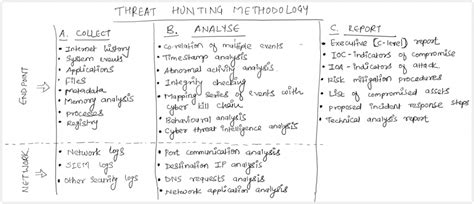 THREAT HUNTING METHODOLOGY
A. COLLECT
• Internet history
• System events
• Applications
• Files
• Metadata
• Memory analysis
• processes
• Registry
B. ANALYSE
• Co-relation of multiple events
• Timestamp analysis
• Abnormal activity analysis
• Integrity checking
• Mapping series of events with
cyber kill chain
• Behavioural analysis
• Cyber threat intelligence analysis
C. REPORT
• Executive [C-level] report
• IOC- indicators of compromise
• IOA- indicators of attack.
• Risk mitigation procedures
• List of compromised assets
• proposed incident response steps
• Technical analysis report
ENDPOINT
• Network logs
• SIEM logs
• Other Security logs
• Port communication analysis
• Destination IP analysis
• DNS requests analysis
• Network application analysis
NETWORK